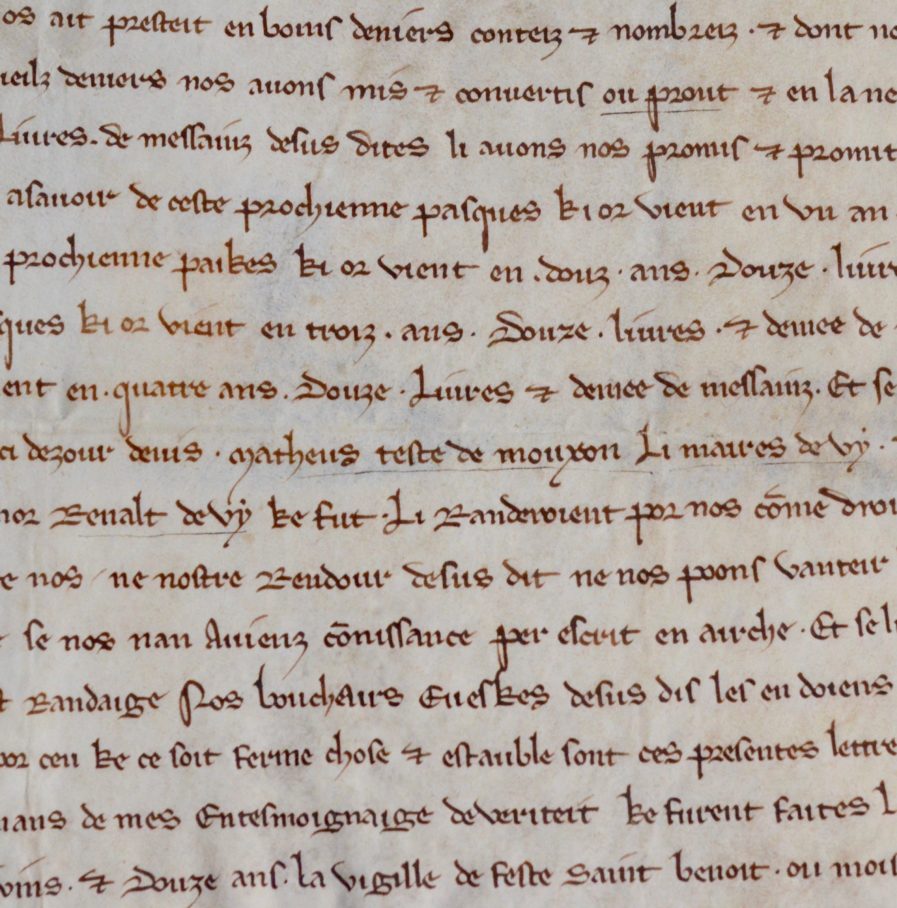 os ait presteit en boins deniers conteiz ⁊ nombreiz · ⁊ dont no
ieilz deniers nos auons mis ⁊ conuertis ou prout ⁊ en la ne
Liures . de messainz desus dites li auons nos promis ⁊ promit
asauoir de ceste prochienne pasques ki or vient en vn an
prochienne paikes ki or vient en . douz · ans . Douze · liur
sques ki or vient en troiz . ans . Douze . liures · ⁊ demee de
ent en · quatre ans . Douze · Liures ⁊ demee de messainz . Et se
ci dezour deuis · Matheus teste de mouxon Li maires de vy ·
nor Renalt de vy ke fut · Li Randeroient por nos cōme droi
e nos ne nostre Rendour desus dit ne nos poons vanteir
se nos nan Auienz cōnissance per escrit en airche · Et se l
t Randaige Nos bouchairs Eueskes desus dis les en doiens
por ceu ke ce soit ferme chose ⁊ estauble sont ces presentes lettre
ians de mes Entesmoignaige deveriteit ke furent faites L
vins . ⁊ Douze ans . la vigille de feste saint benoit · ou mois